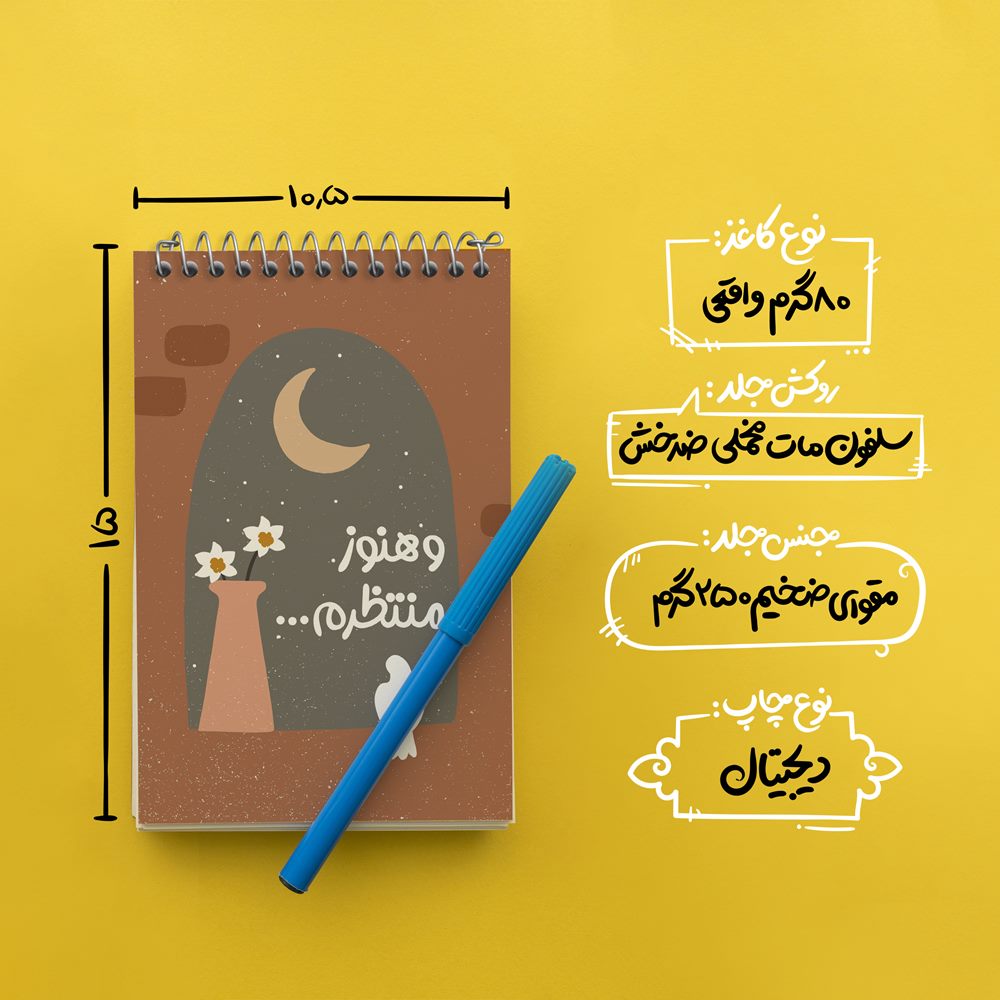 ۱۰٫۵
۱۵
و هنوز
منتظرم...
نوع کاغذ:
۸۰ گرم واقعی
روکش جلد:
سلفون مات مخملی ضدخش
جنس جلد:
مقوای ضخیم ۲۵۰ گرم
نوع چاپ:
دیجیتال